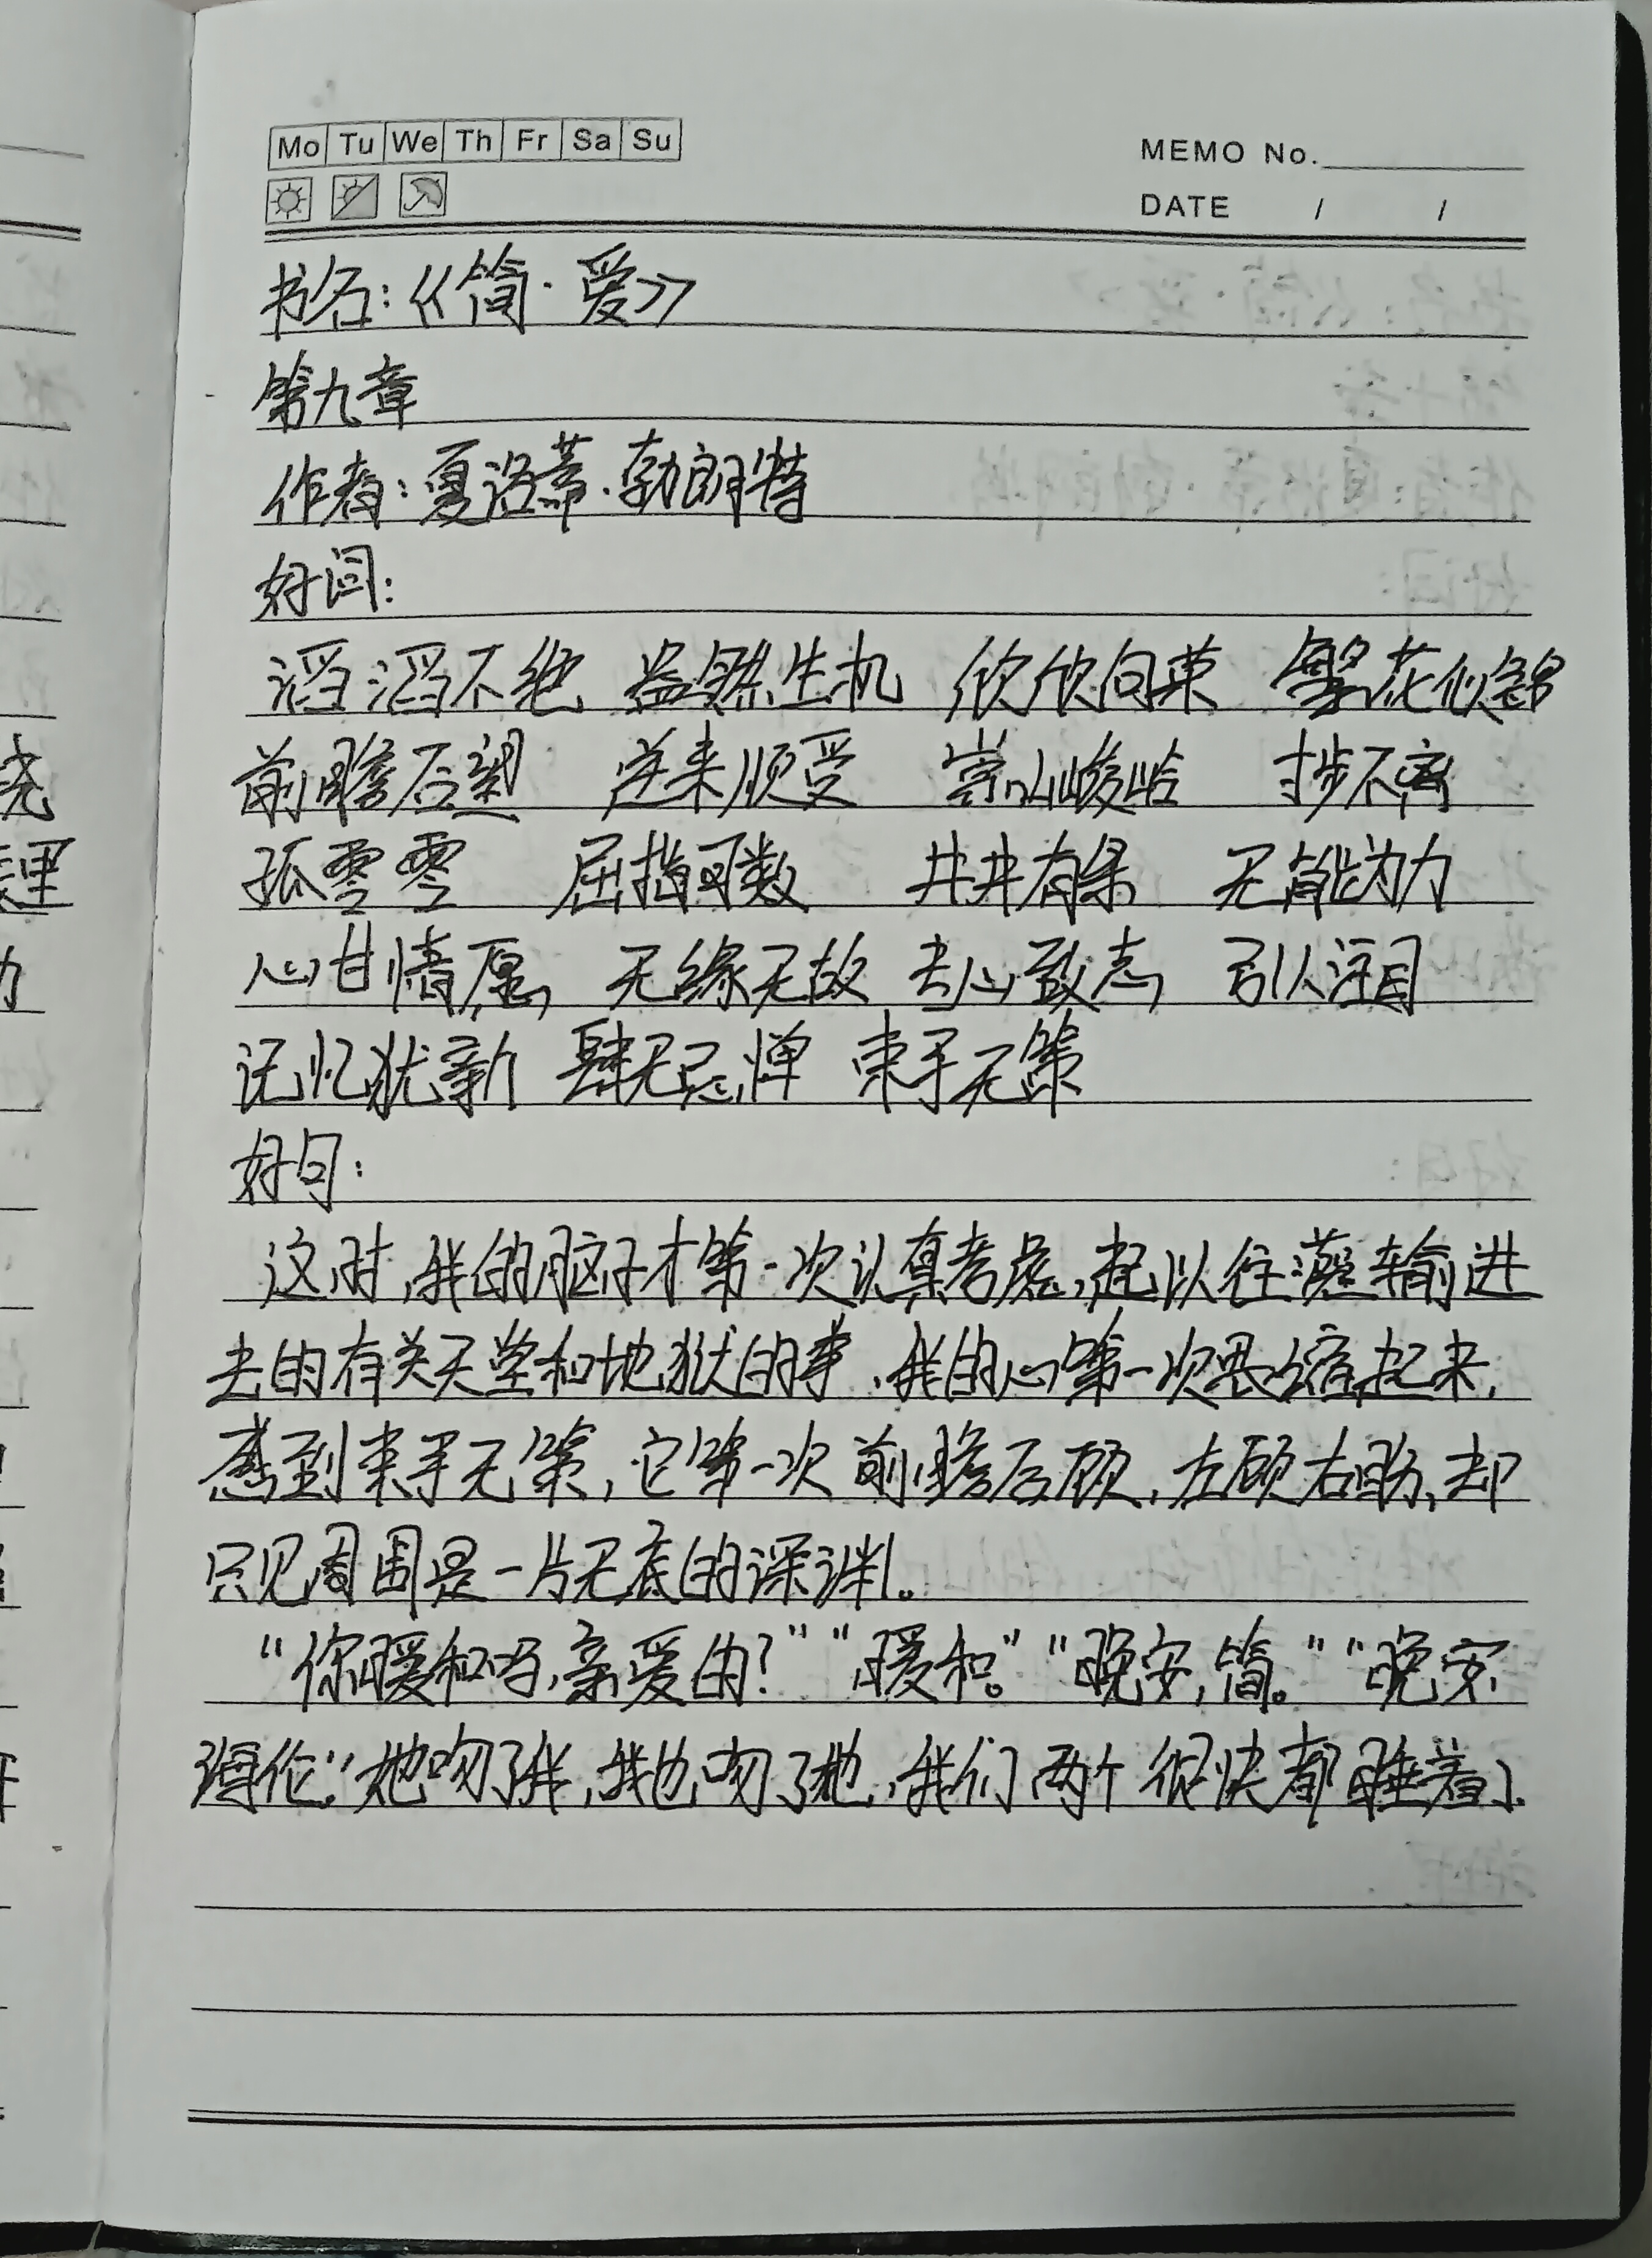 Mo Tu We Th Fr Sa Su
MEMO No.
DATE / /
书名:《简·爱》
第九章
作者:夏洛蒂·勃朗特
好词:
滔滔不绝 盎然生机 欣欣向荣 繁花似锦
前瞻后望 逆来顺受 崇山峻岭 寸步不离
孤零零 屈指可数 井井有条 无能为力
心甘情愿 无缘无故 专心致志 引人注目
记忆犹新 肆无忌惮 束手无策
好句:
这时,我的脑子才第一次认真考虑,起以往灌输进
去的有关天堂和地狱的事,我的心第一次畏缩起来,
感到束手无策,它第一次前瞻后顾,左顾右盼,却
只见周围是一片无底的深渊。
“你暖和吗,亲爱的?”“暖和。”“晚安,简。”“晚安
海伦.”她吻了我,我也吻了她,我们两个很快都睡着了.